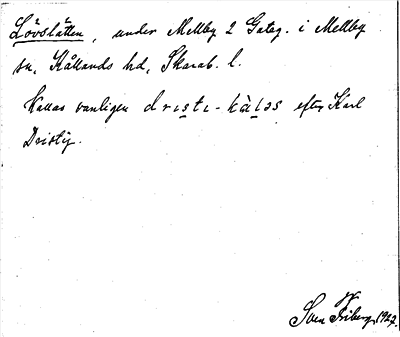 Lövslätten, under Mellby 2 Gateg. i Mellby
sn, Kållands hd, Skarab. l.
Kallas vanligen drıstı-kàləs efter Karl
Dristig.
Sven Friberg, 1927.